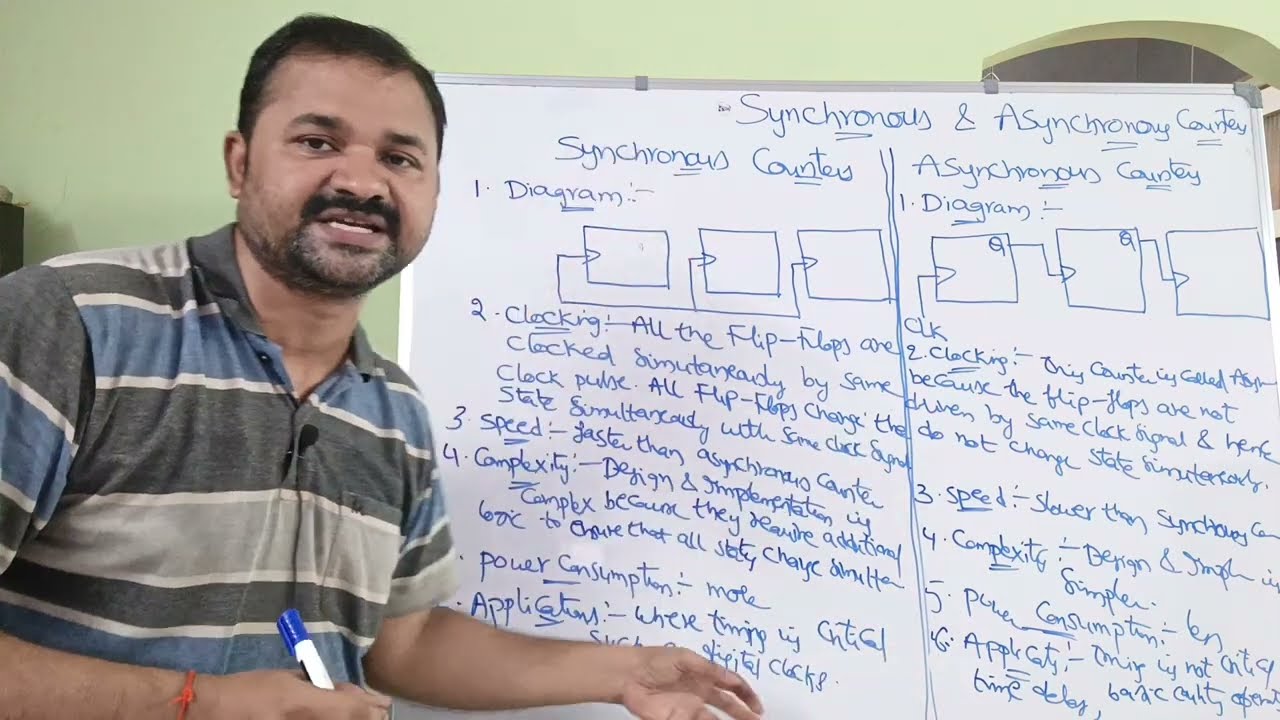 Synchronous & ASynchronous Counters
Synchronous Counters
1. Diagram :-
2. Clocking :- All the Flip-Flops are
Clocked simutaneously by same
Clock pulse. All Flip-Flops Change the
State Simultaneously with same clock signal
3. speed :- faster than asynchronous Counter
4. Complexity :- Design & Implementation is
Complex because they require additional
logic to ensure that all state change simultan
power Consumption :- more
Applications :- where timing is Critical
such as digital clocks.
ASynchronous Counters
1. Diagram :-
Q Q
Clk
2. Clocking :- This Counter is called Asyn
because the flip-flops are not
driven by same clock signal & hence
do not change state simutaneously.
3. speed :- Slower than Synchronous Con
4. Complexity :- Design & Imple is
Simpler.
5. power Consumption :- less
6. Applicati :- timing is not critical
time delay, basic